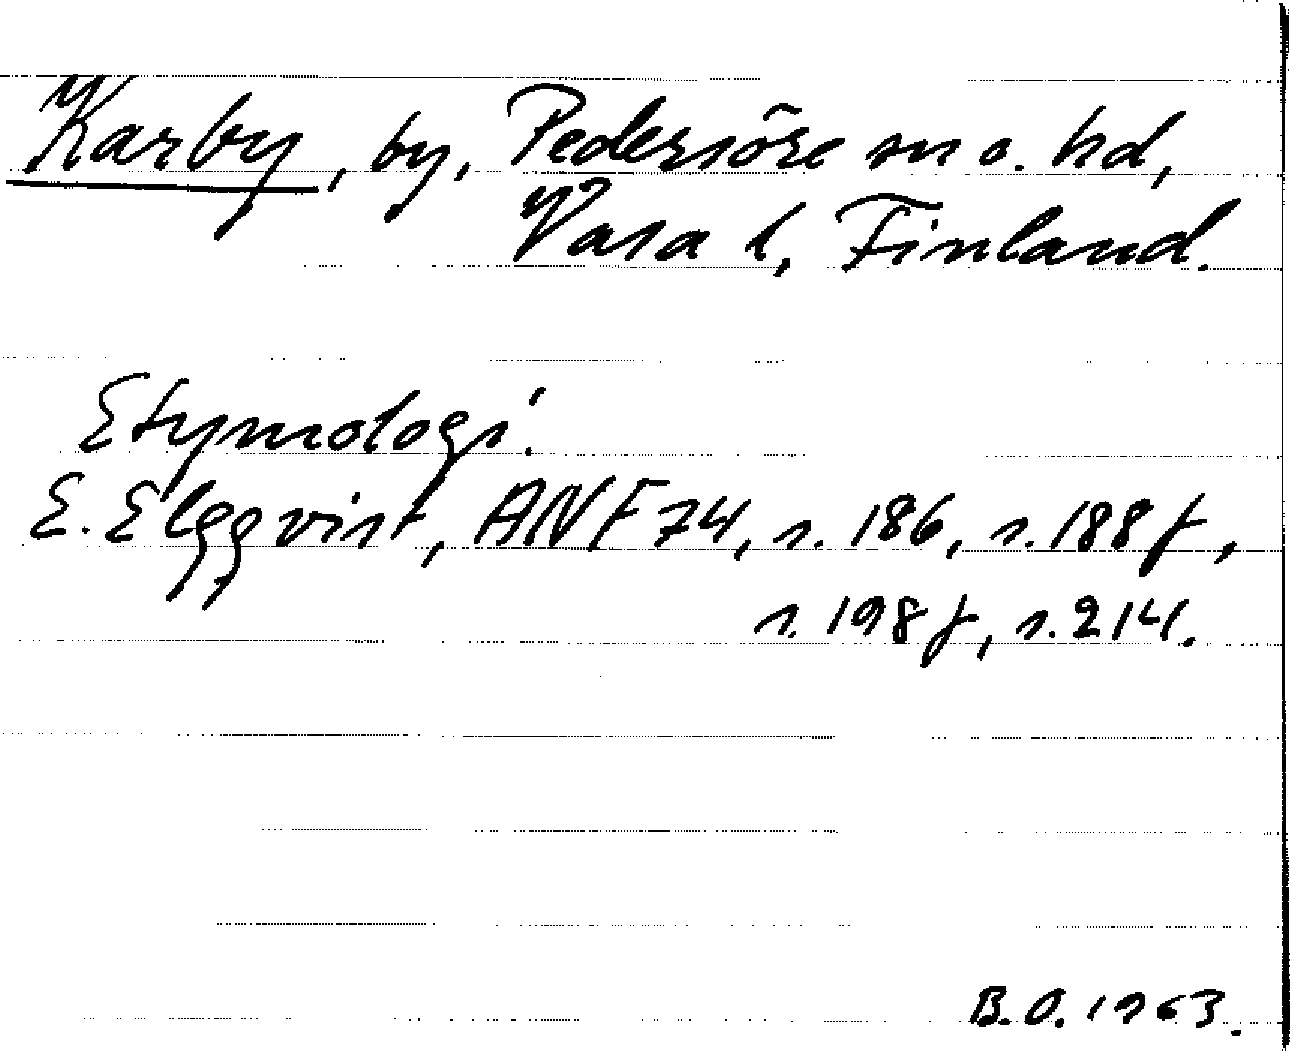 Karby, by, Pedersöre sn o. hd,
Vasa l, Finland.
Etymologi.
E. Elgqvist, ANF 74, s. 186, s. 188 f,
s. 198 f, s. 214.
B.O. 1963.